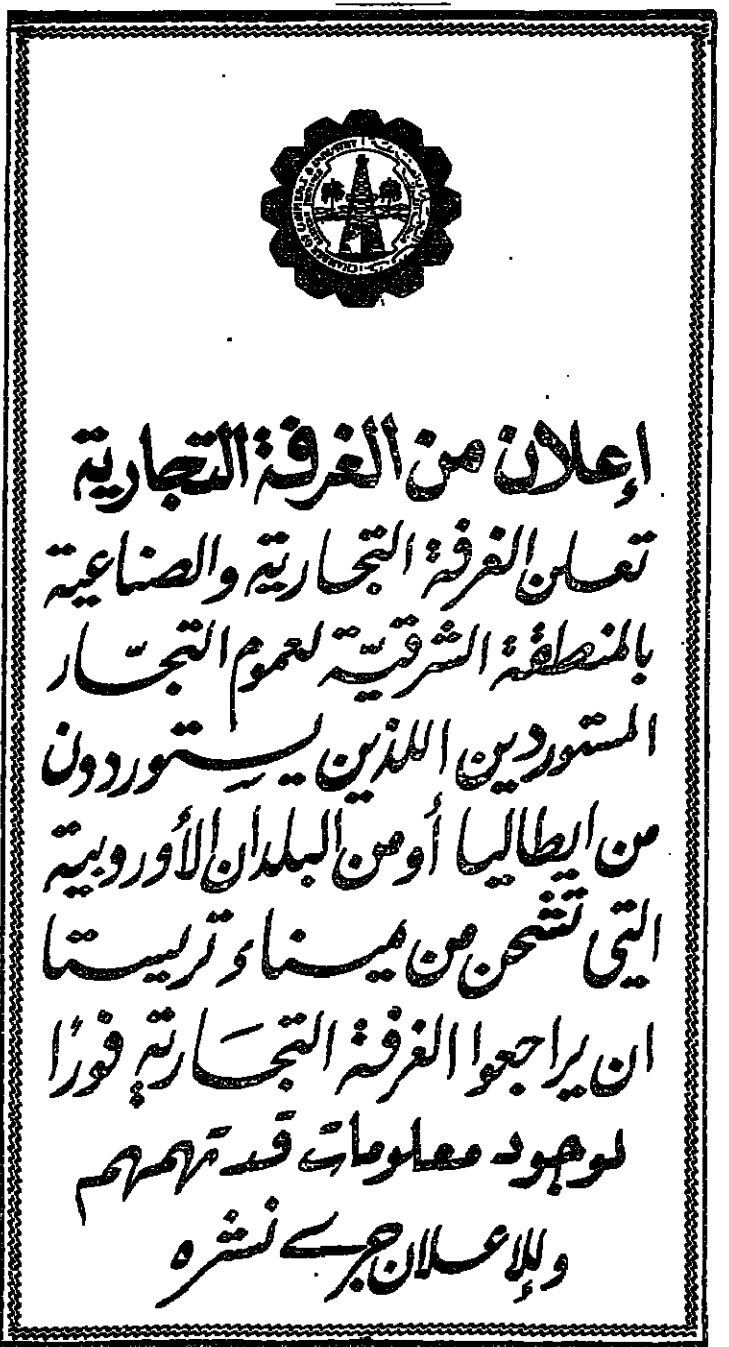 CHAMBER OF COMMERCE & INDUSTRY
إعلان من الغرفة التجارية
تعلن الغرفة التجارية والصناعية
بالمنطقة الشرقيّة لعموم التجّار
المستوردين اللذين يستوردون
من ايطاليا أو من البلدان الأوروبية
التي تشحن من ميناء تريستا
ان يراجعوا الغرفة التجَارية فورًا
لوجود معلومات قد تهمهم
وللإعلان جرى نشره